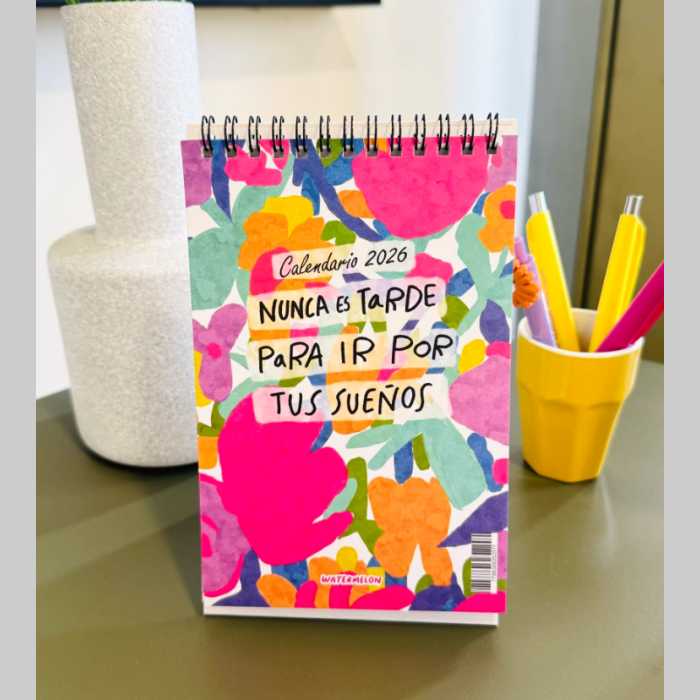 Calendario 2026
NUNCA ES TaRDE
PaRA IR POR
TUS SUEÑOS
WATERMELON